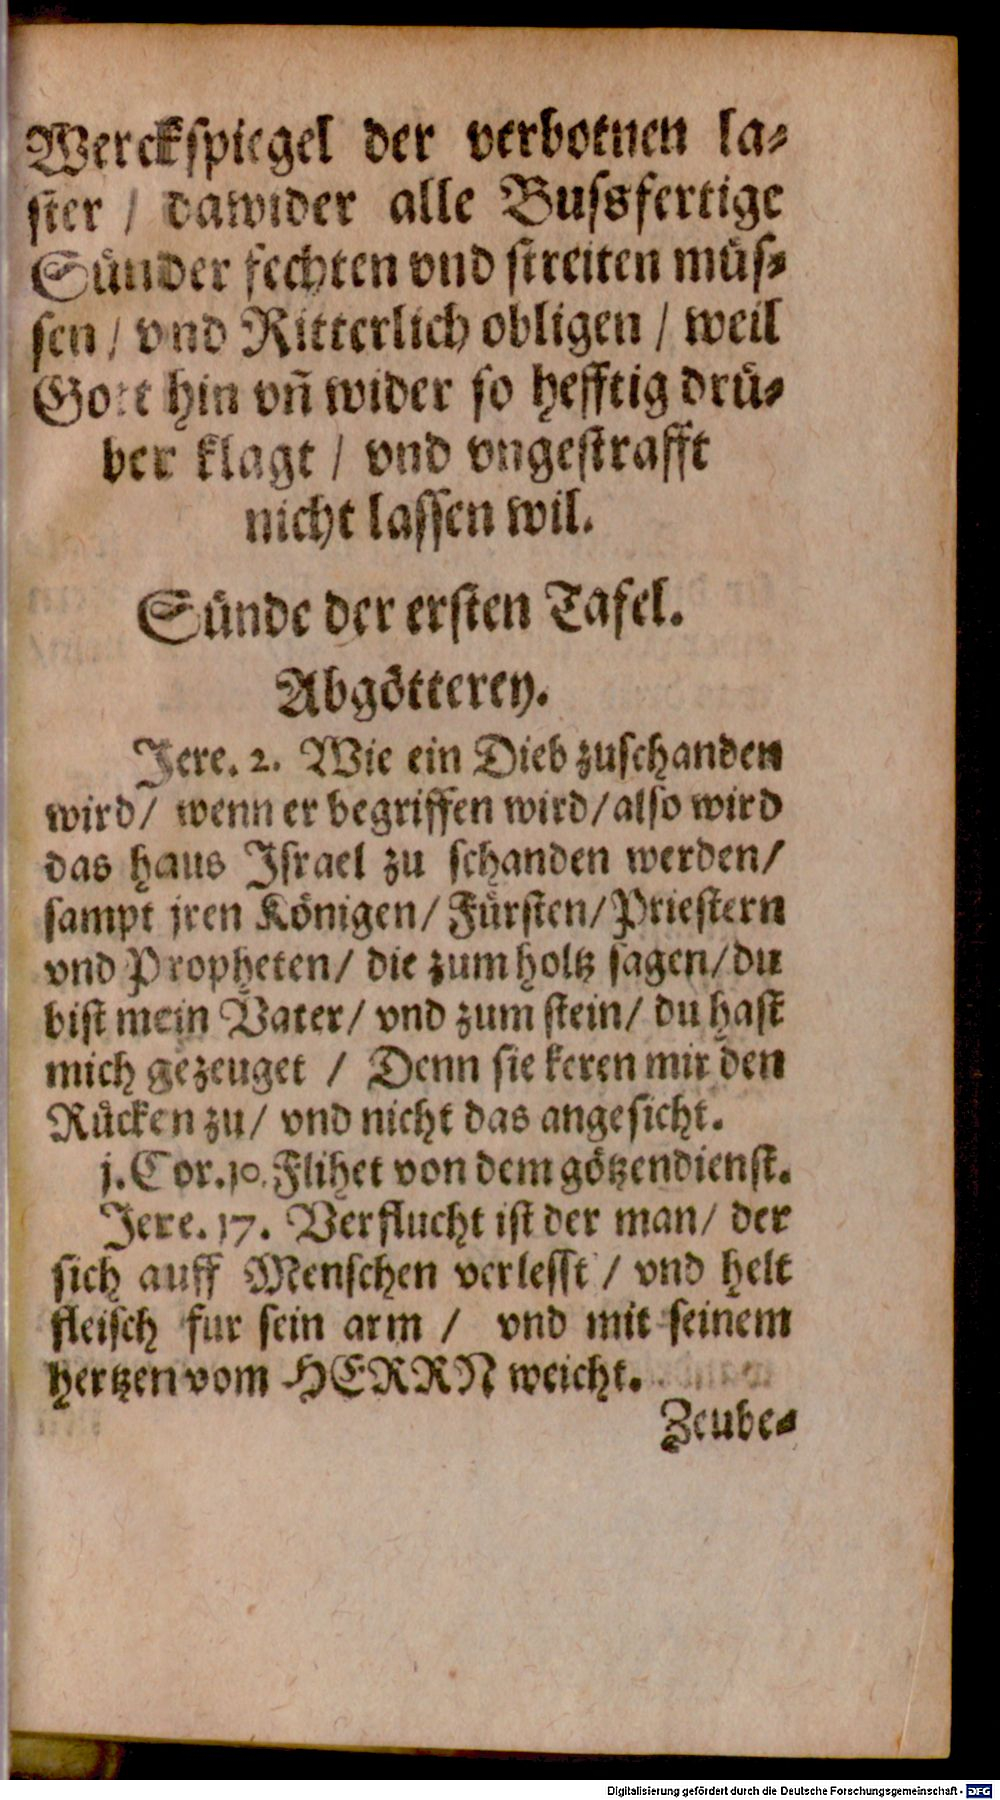 Werckspiegel der verbotnen la⸗
ster / dawider alle Bussfertige
Sünder fechten vnd streiten müs⸗
sen / vnd Ritterlich obligen / weil
Gott hin vñ wider so hefftig drü⸗
ber klagt / vnd vngestrafft
nicht lassen wil.
Sünde der ersten Tafel.
Abgötterey.
Jere. 2. Wie ein Dieb zuschanden
wird/ wenn er begriffen wird/also wird
das haus Israel zu schanden werden/
sampt jren Königen/ Fürsten/ Priestern
vnd Propheten/ die zum holtz sagen/ du
bist mein Vater/ vnd zum stein/ du hast
mich gezeuget / Denn sie keren mir den
Rücken zu/ vnd nicht das angesicht.
j. Cor. 10. Flihet von dem götzendienst.
Jere. 17. Verflucht ist der man/ der
sich auff Menschen verlesst / vnd helt
fleisch fur sein arm / vnd mit seinem
hertzen vom HERRN weicht.
Zeube⸗
Digitalisierung gefördert durch die Deutsche Forschungsgemeinschaft - DFG